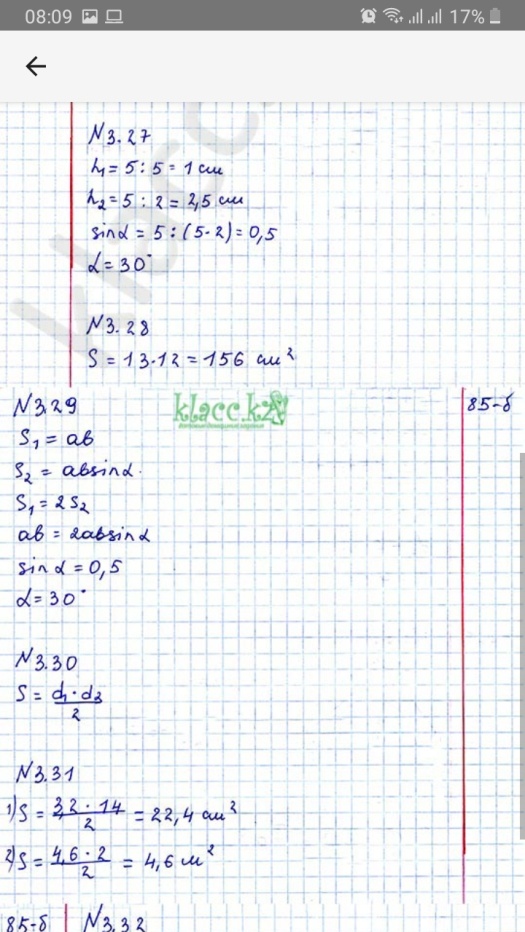 08:09
17%
N3.27
h₁ = 5 : 5 = 1 см
h₂ = 5 : 2 = 2,5 см
sinα = 5 : (5·2) = 0,5
α = 30°
N3.28
S = 13·12 = 156 см²
klacc.kz
85-б
N3.29
S₁ = ab
S₂ = absinα.
S₁ = 2S₂
ab = 2absinα
sinα = 0,5
α = 30°
N3.30
S = d₁·d₂/2
N3.31
1) S = 3,2·14/2 = 22,4 см²
2) S = 4,6·2/2 = 4,6 м²
85-б N3.32